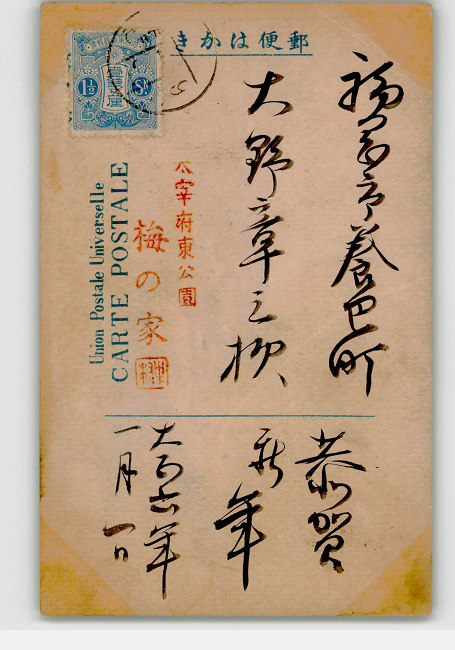 郵便はかき
1½ Sn
福岡市養巴町
大野章三様
太宰府東公園
梅の家
Union Postale Universelle
CARTE POSTALE
恭賀
新年
大正六年
一月一日